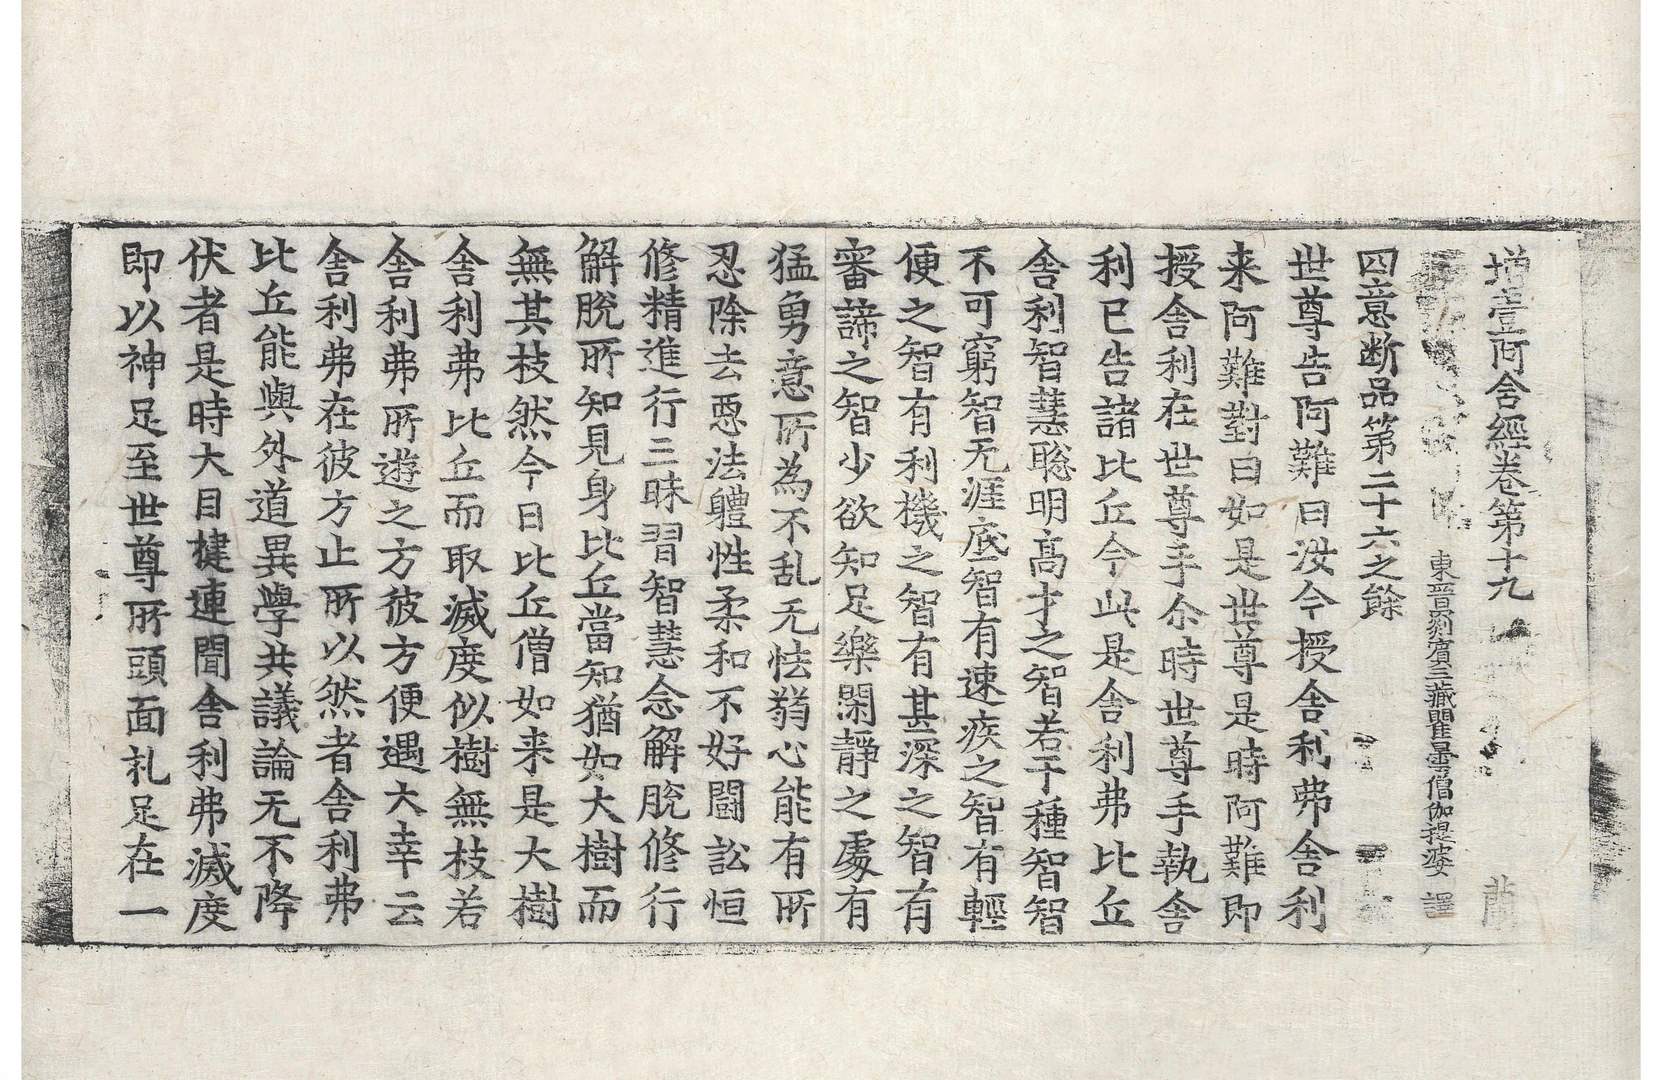 増壹阿含經卷第十九 蘭
東晉罽賓三藏瞿曇僧伽提婆 譯
四意断品第二十六之餘
世尊告阿難曰汝今授舎利弗舎利
来阿難對曰如是世尊是時阿難即
授舎利在世尊手尒時世尊手執舎
利已告諸比丘今此是舎利弗比丘
舎利智慧聡明高才之智若干種智智
不可窮智无涯底智有速疾之智有輕
便之智有利機之智有甚深之智有
審諦之智少欲知足樂閑靜之處有
猛勇意所為不乱无怯翁心能有所
忍除去悪法軆性柔和不好闘訟恒
修精進行三昧習智慧念解脫修行
解脫所知見身比丘當知猶如大樹而
無其枝然今日比丘僧如来是大樹
舎利弗比丘而取滅度似樹無枝若
舎利弗所遊之方彼方便遇大幸云
舎利弗在彼方止所以然者舎利弗
比丘能與外道異學共議論无不降
伏者是時大目揵連聞舎利弗滅度
即以神足至世尊所頭面礼足在一